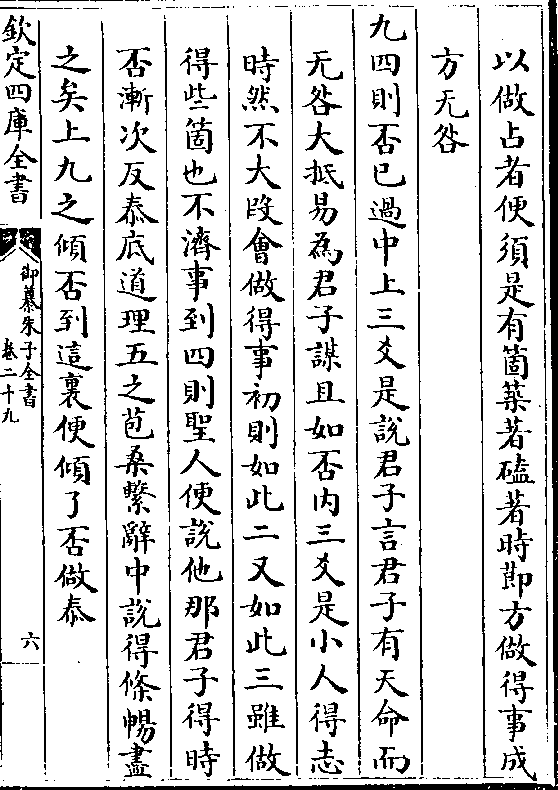 以做占者便須是有箇築著磕著時節方做得事成
方无咎
九四則否已過中上三爻是說君子言君子有天命而
无咎大抵易為君子謀且如否内三爻是小人得志
時然不大段會做得事初則如此二又如此三雖做
得些箇也不濟事到四則聖人便說他那君子得時
否漸次反泰底道理五之苞桑繫辭中說得條暢盡
之矣上九之傾否到這裏便傾了否做泰
欽定四庫全書
御纂朱子全書
卷二十九
六